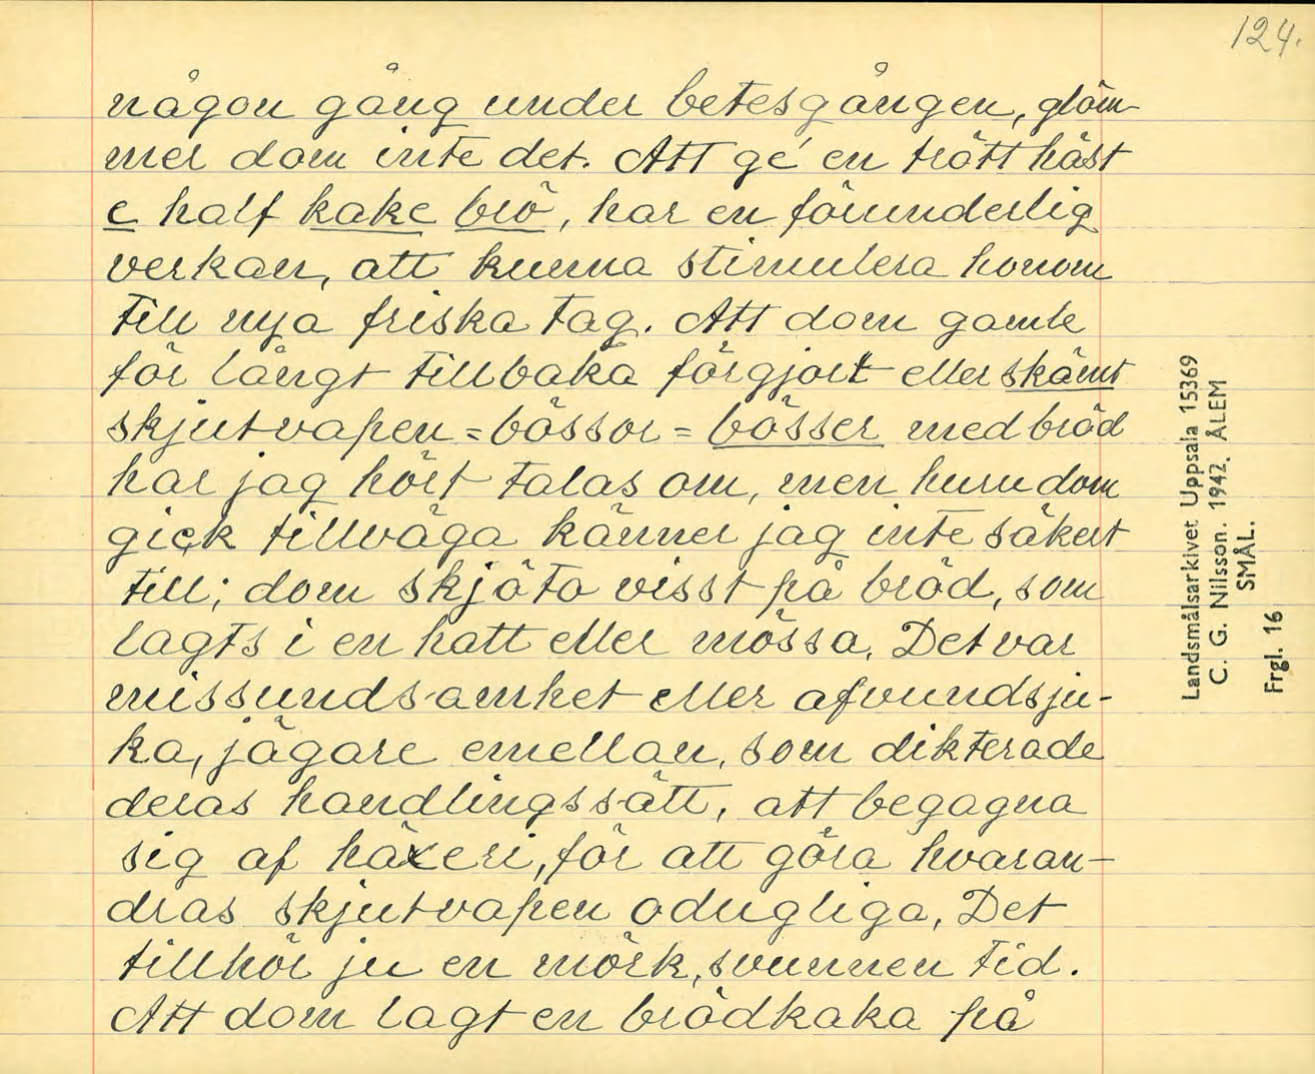 124.
någon gång under betesgången, glöm-
mer dom inte det. Att gé en trött häst
e half kake brö, har en förunderlig
verkan, att kunna stimulera honom
till nya friska tag. Att dom gamle
för långt tillbaka förgjort eller skämt
skjutvapen = bössor = bösser med bröd
har jag hört talas om, men huru dom
gick tillväga känner jag inte säkert
till; dom skjöto visst på bröd, som
lagts i en hatt eller mössa. Det var
missundsamhet eller afvundsju-
ka, jägare emellan, som dikterade
deras handlingssätt, att begagna
sig af häxeri, för att göra hvaran-
dras skjutvapen odugliga. Det
tillhör ju en mörk, svunnen tid.
Att dom lagt en brödkaka på
Landsmålsarkivet Uppsala 15369
C. G. Nilsson. 1942. ÅLEM
SMÅL.
Frgl. 16